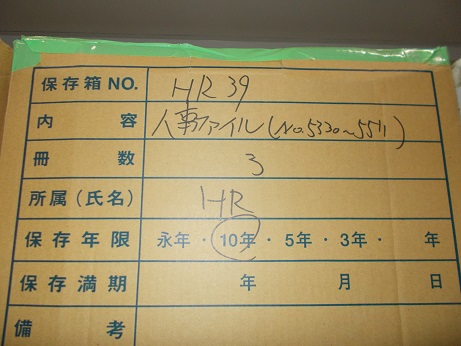 保存箱NO. HR39
内容 人事ファイル(No.5330~5511)
冊数 3
所属(氏名) HR
保存年限 永年・10年・5年・3年・ 年
保存満期 年 月 日
備考